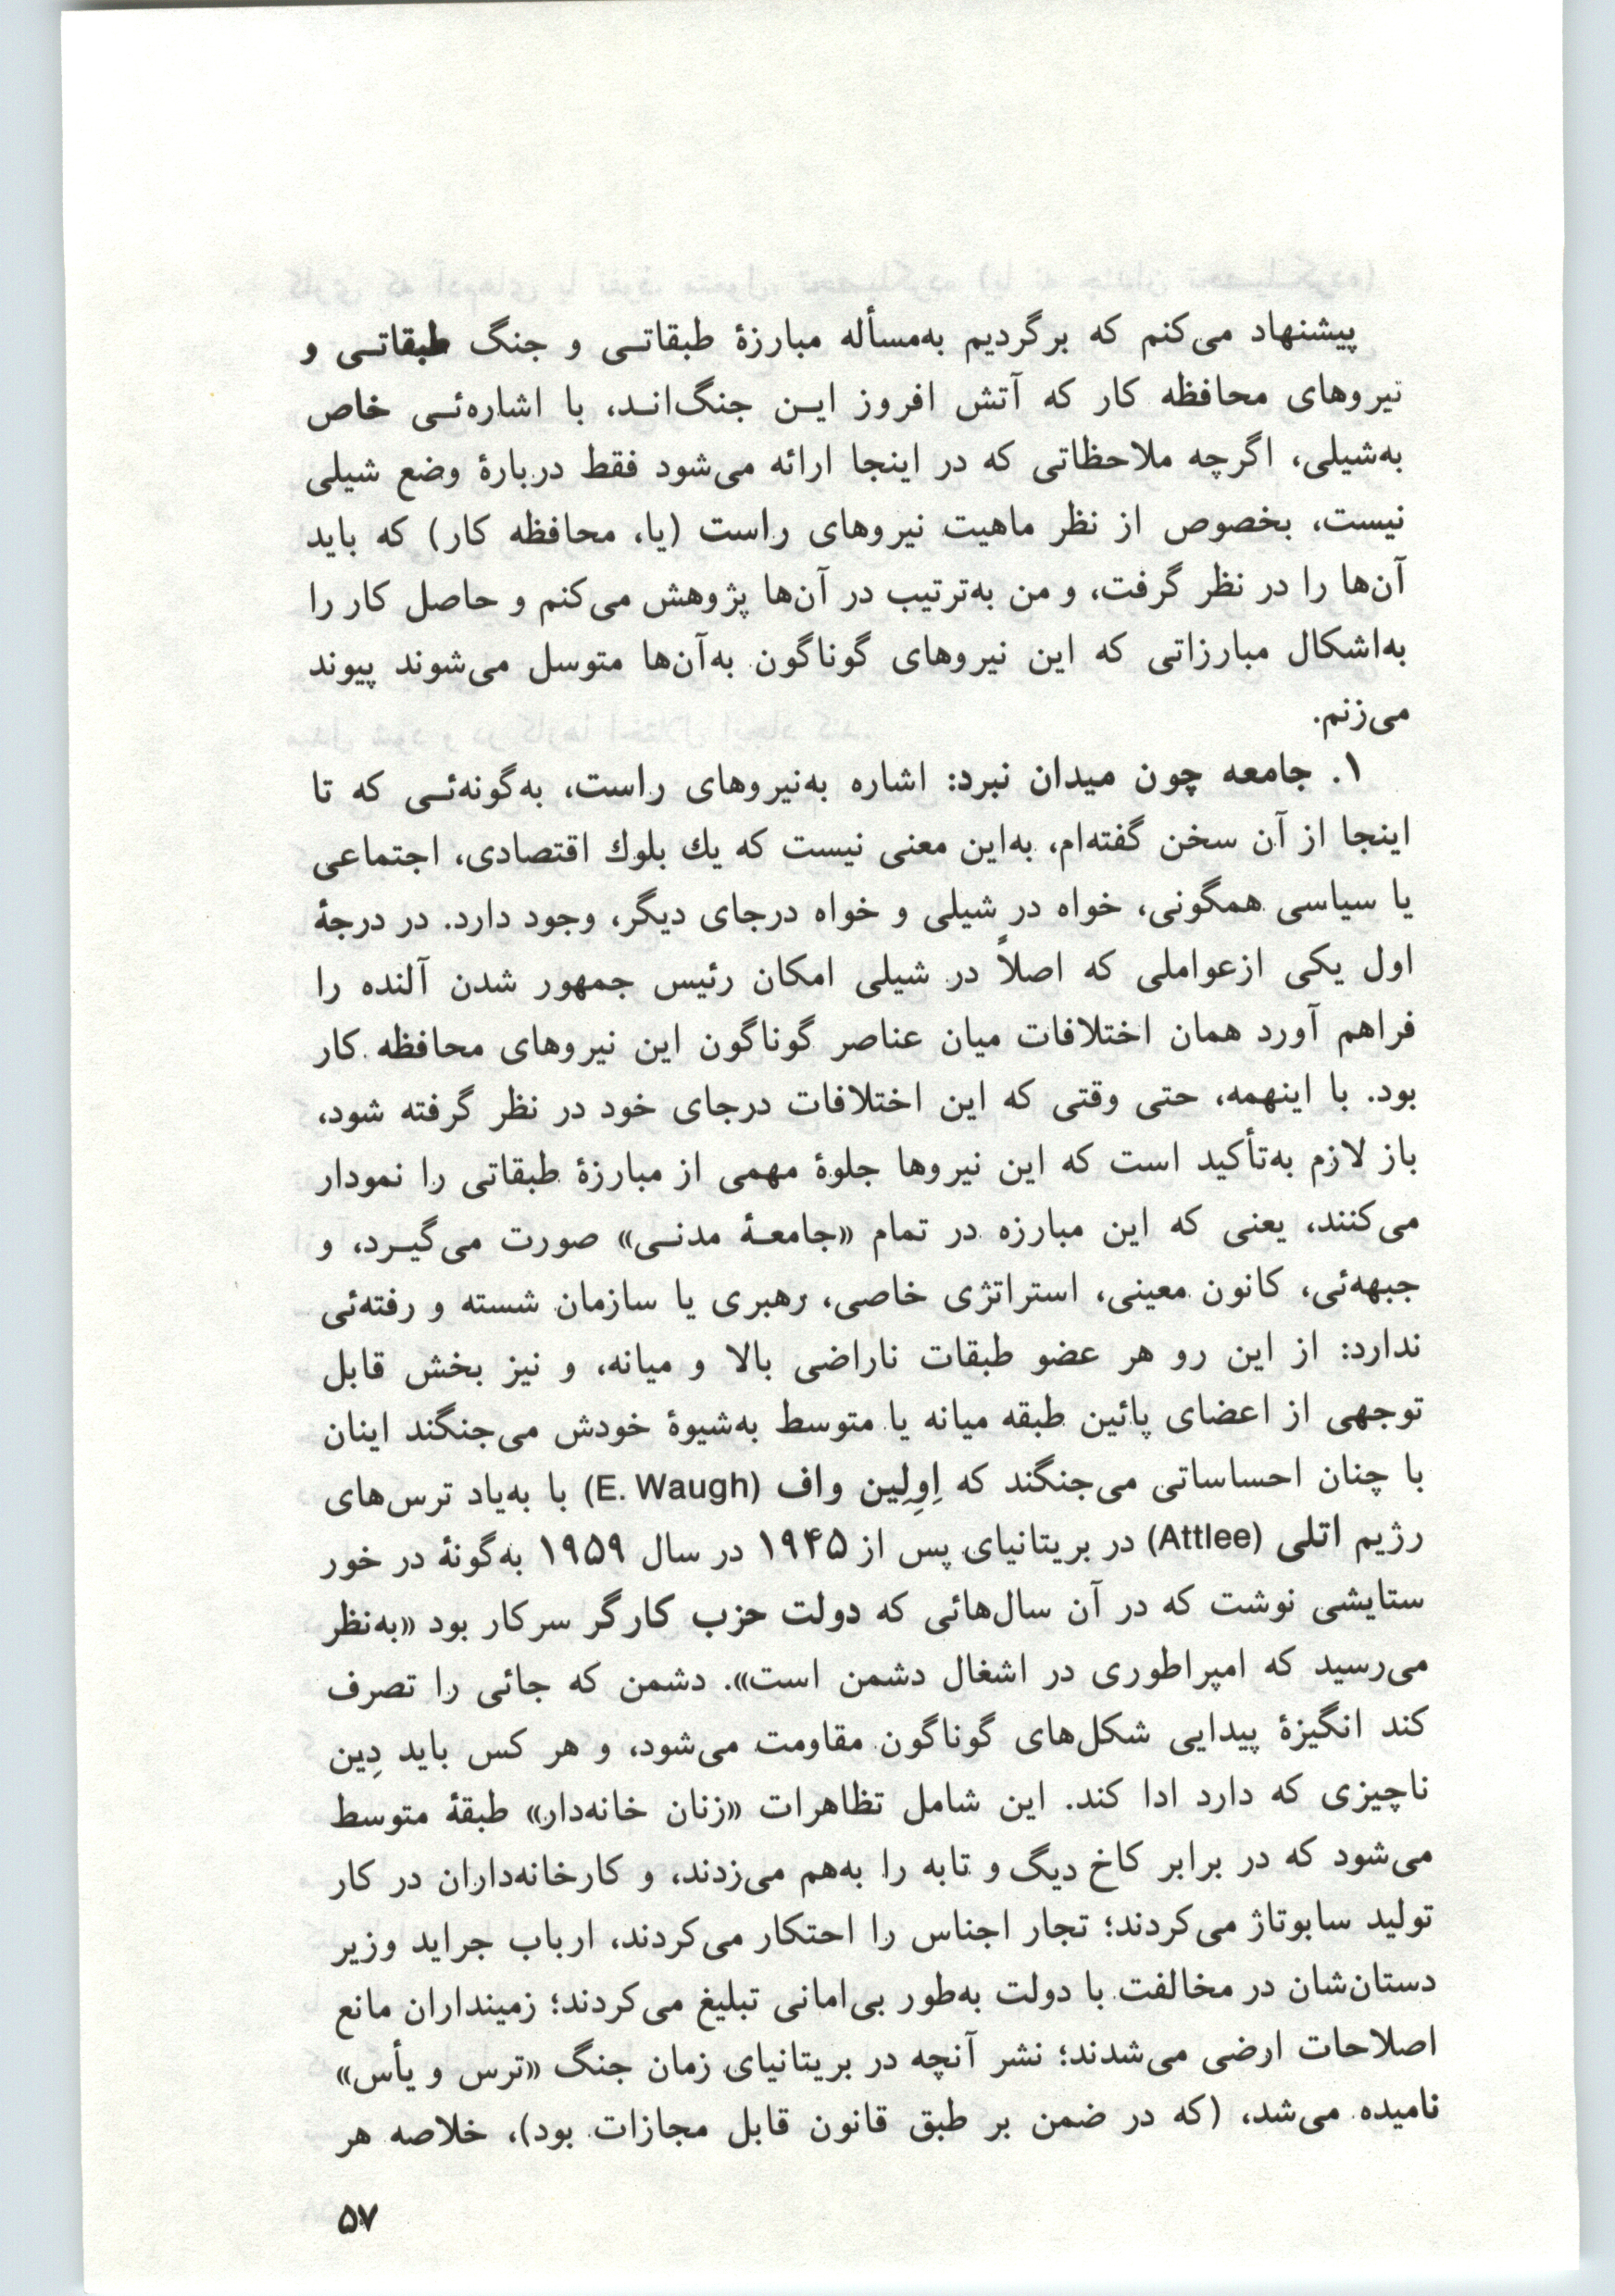 پیشنهاد می‌کنم که برگردیم به‌مسأله مبارزهٔ طبقاتـی و جنگ طبقاتـی و
نیروهای محافظه کار که آتش افروز ایـن جنگ‌انـد، با اشاره‌ئـی خاص
به‌شیلی، اگرچه ملاحظاتی که در اینجا ارائه می‌شود فقط دربارهٔ وضع شیلی
نیست، بخصوص از نظر ماهیت نیروهای راست (یا، محافظه کار) که باید
آن‌ها را در نظر گرفت، و من به‌ترتیب در آن‌ها پژوهش می‌کنم و حاصل کار را
به‌اشکال مبارزاتی که این نیروهای گوناگون به‌آن‌ها متوسل می‌شوند پیوند
می‌زنم.
۱. جامعه چون میدان نبرد: اشاره به‌نیروهای راست، به‌گونه‌ئـی که تا
اینجا از آن سخن گفته‌ام، به‌این معنی نیست که یك بلوك اقتصادی، اجتماعی
یا سیاسی همگونی، خواه در شیلی و خواه درجای دیگر، وجود دارد. در درجهٔ
اول یکی ازعواملی که اصلاً در شیلی امکان رئیس جمهور شدن آلنده را
فراهم آورد همان اختلافات میان عناصر گوناگون این نیروهای محافظه کار
بود. با اینهمه، حتی وقتی که این اختلافات درجای خود در نظر گرفته شود،
باز لازم به‌تأکید است که این نیروها جلوهٔ مهمی از مبارزهٔ طبقاتی را نمودار
می‌کنند، یعنی که این مبارزه در تمام «جامعـهٔ مدنـی» صورت می‌گیـرد، و
جبهه‌ئی، کانون معینی، استراتژی خاصی، رهبری یا سازمان شسته و رفته‌ئی
ندارد: از این رو هر عضو طبقات ناراضی بالا و میانه، و نیز بخش قابل
توجهی از اعضای پائین طبقه میانه یا متوسط به‌شیوهٔ خودش می‌جنگند اینان
با چنان احساساتی می‌جنگند که اِوِلِین واف (E. Waugh) با به‌یاد ترس‌های
رژیم اتلی (Attlee) در بریتانیای پس از ۱۹۴۵ در سال ۱۹۵۹ به‌گونهٔ در خور
ستایشی نوشت که در آن سال‌هائی که دولت حزب کارگر سرکار بود «به‌نظر
می‌رسید که امپراطوری در اشغال دشمن است». دشمن که جائی را تصرف
کند انگیزهٔ پیدایی شکل‌های گوناگون مقاومت می‌شود، و هر کس باید دِین
ناچیزی که دارد ادا کند. این شامل تظاهرات «زنان خانه‌دار» طبقهٔ متوسط
می‌شود که در برابر کاخ دیگ و تابه را به‌هم می‌زدند، و کارخانه‌داران در کار
تولید سابوتاژ می‌کردند؛ تجار اجناس را احتکار می‌کردند، ارباب جراید وزیر
دستان‌شان در مخالفت با دولت به‌طور بی‌امانی تبلیغ می‌کردند؛ زمینداران مانع
اصلاحات ارضی می‌شدند؛ نشر آنچه در بریتانیای زمان جنگ «ترس و یأس»
نامیده می‌شد، (که در ضمن بر طبق قانون قابل مجازات بود)، خلاصه هر
۵۷